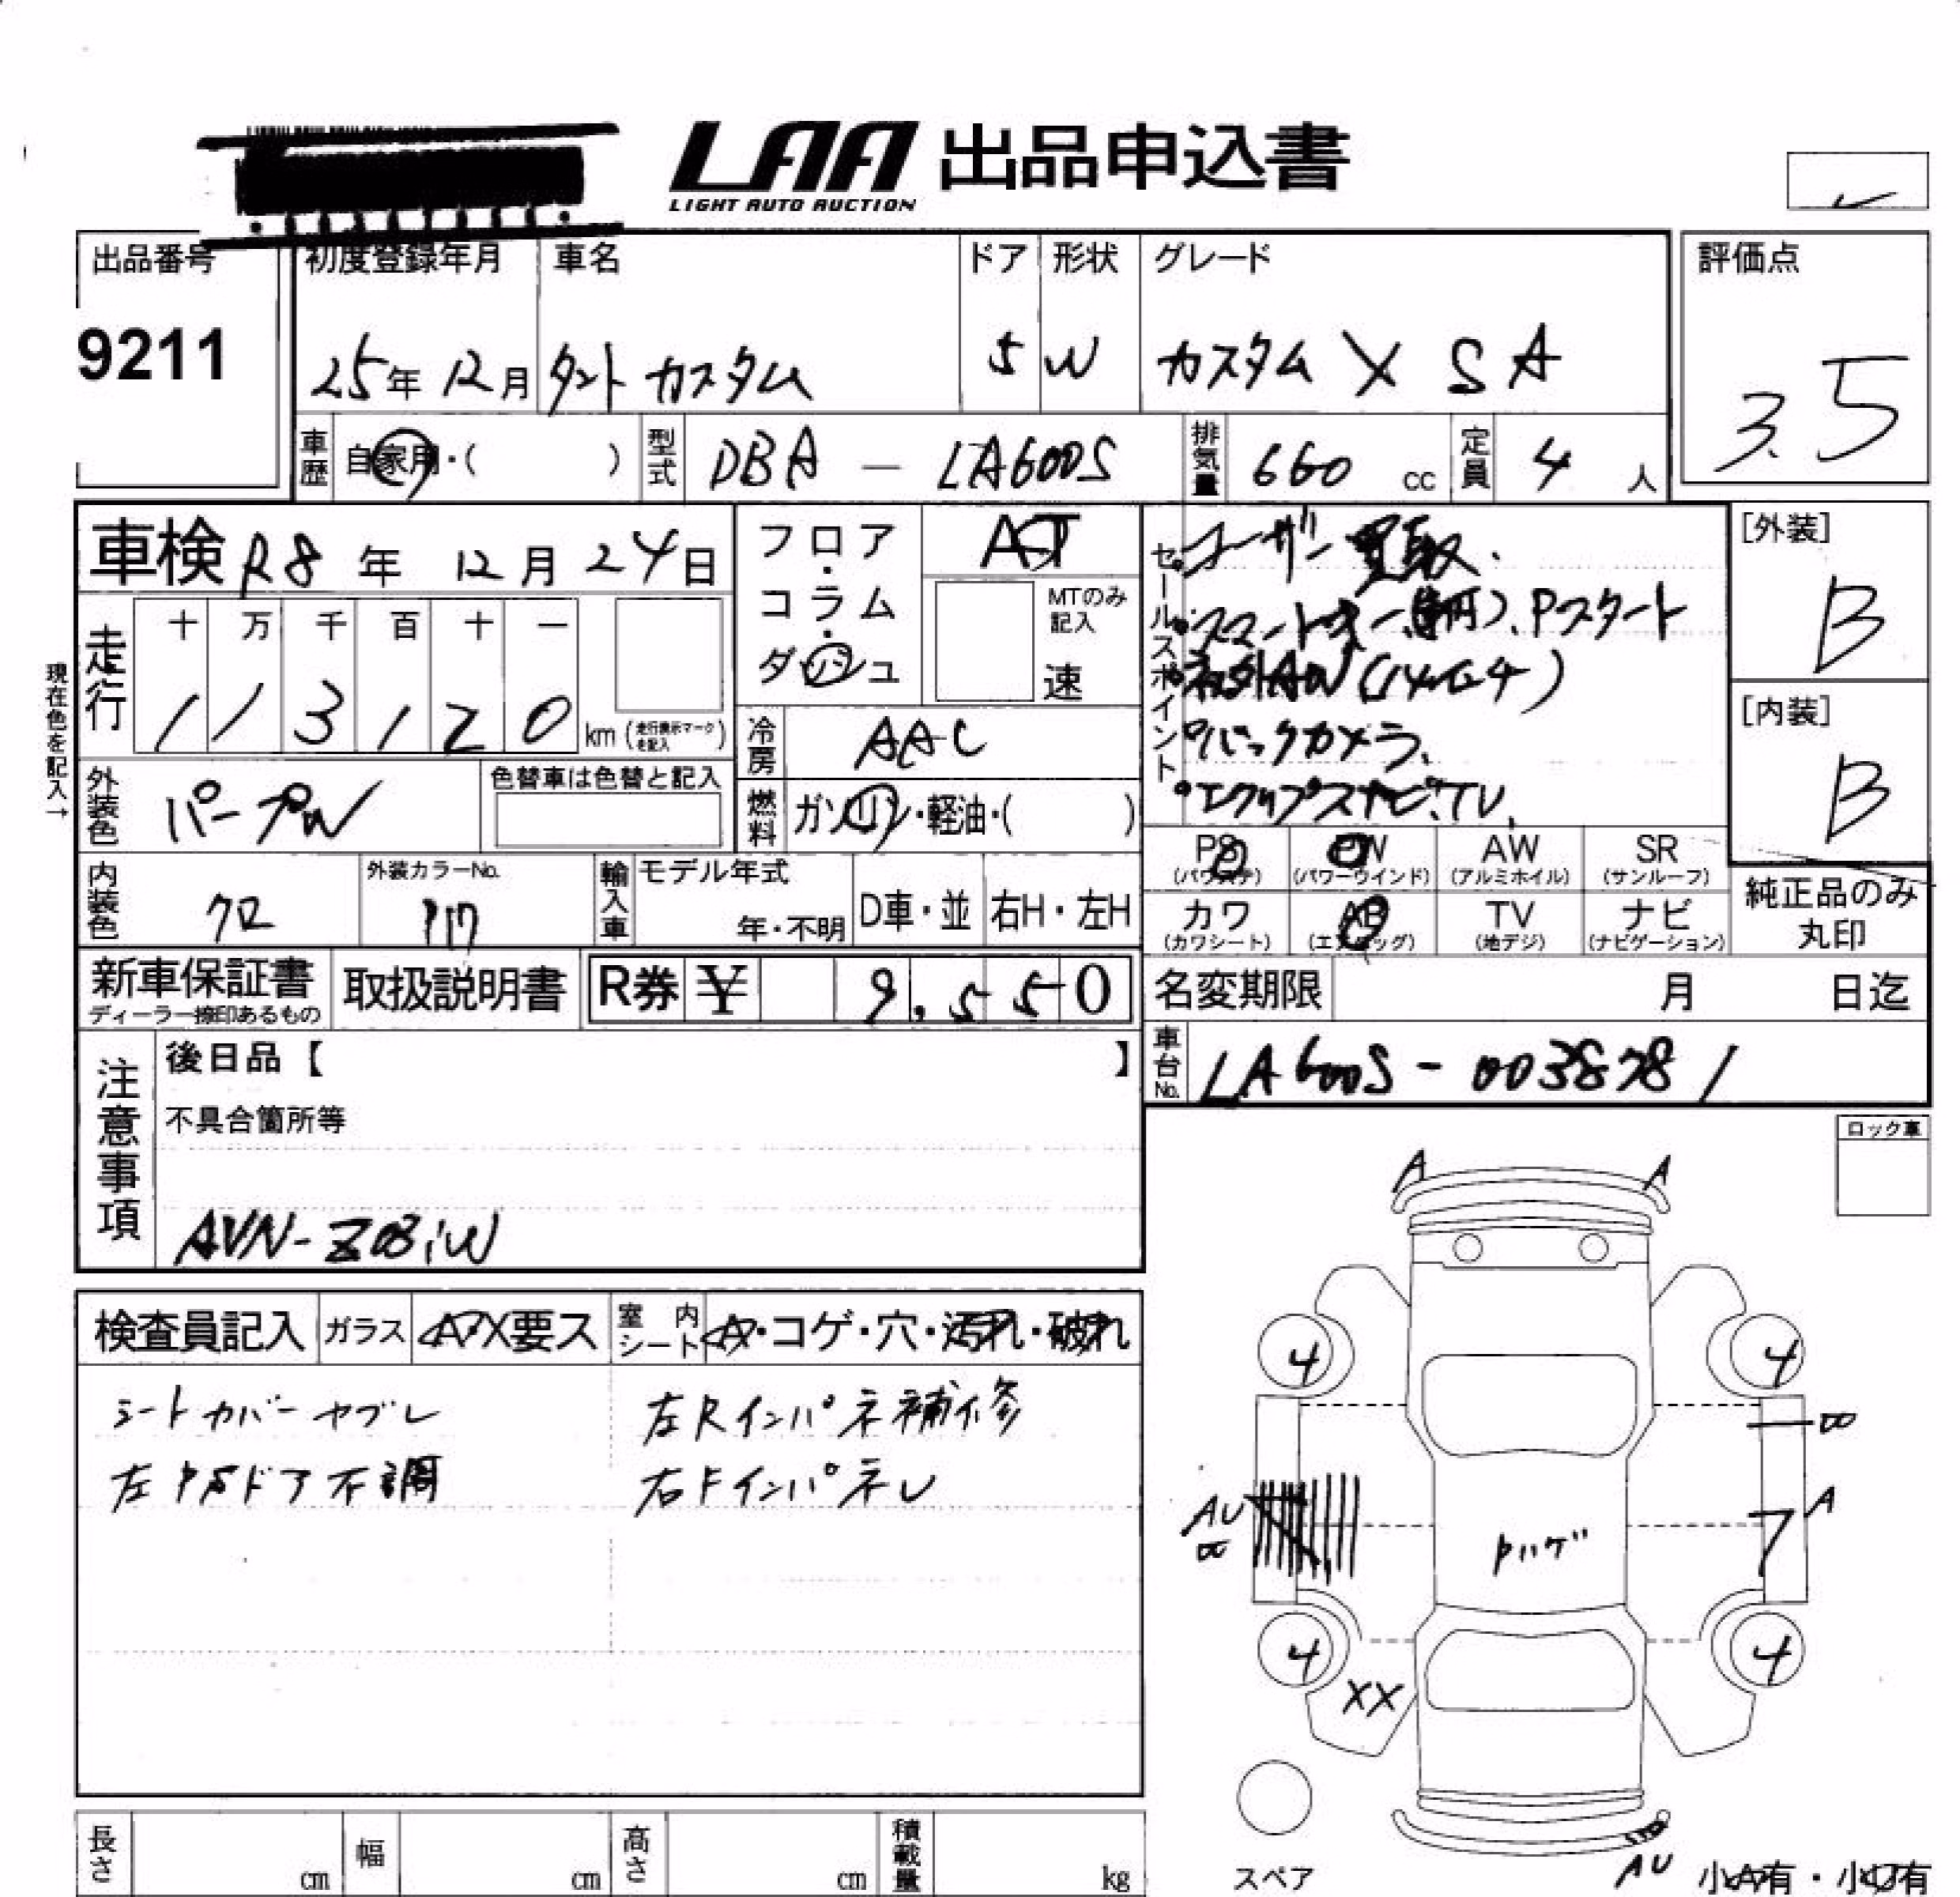 LAA 出品申込書
LIGHT AUTO AUCTION
出品番号 初度登録年月 車名 ドア 形状 グレード 評価点
9211 25年 12月 タント カスタム 5 W カスタム X SA 3.5
車歴 自家用・( ) 型式 DBA - LA600S 排気量 660 cc 定員 4 人
車検 R8年 12月 24日 フロア・コラム・ダッシュ AT
MTのみ記入 速
セールスポイント
ユーザー買取.
Pスタート
バックカメラ.
エクリプスナビ.TV.
[外装]
B
[内装]
B
現在色を記入→
走行 十 万 千 百 十 一
1 1 3 1 2 0 km (走行表示マークを記入)
冷房 AAC
外装色 パープル 色替車は色替と記入
燃料 ガソリン・軽油・( )
PS (パワステ) PW (パワーウインド) AW (アルミホイル) SR (サンルーフ)
カワ (カワシート) AB (エアバッグ) TV (地デジ) ナビ (ナビゲーション)
純正品のみ丸印
内装色 クロ 外装カラーNo. P17 輸入車 モデル年式 年・不明 D車・並 右H・左H
新車保証書 ディーラー捺印あるもの 取扱説明書 R券 ¥ 9,550
名変期限 月 日迄
車台No. LA600S-0038781
注意事項
後日品【 】
不具合箇所等
AVN-Z03iW
ロック車
検査員記入 ガラス A・X要ス 室内シート A・コゲ・穴・汚れ・破れ
シートカバーヤブレ 左Rインパネ補修
左PSドア不調 右Fインパネレ
A A
4 4
A
AU
ハゲ
4 4
XX
スペア
AU
小A有・小U有
長さ cm 幅 cm 高さ cm 積載量 kg